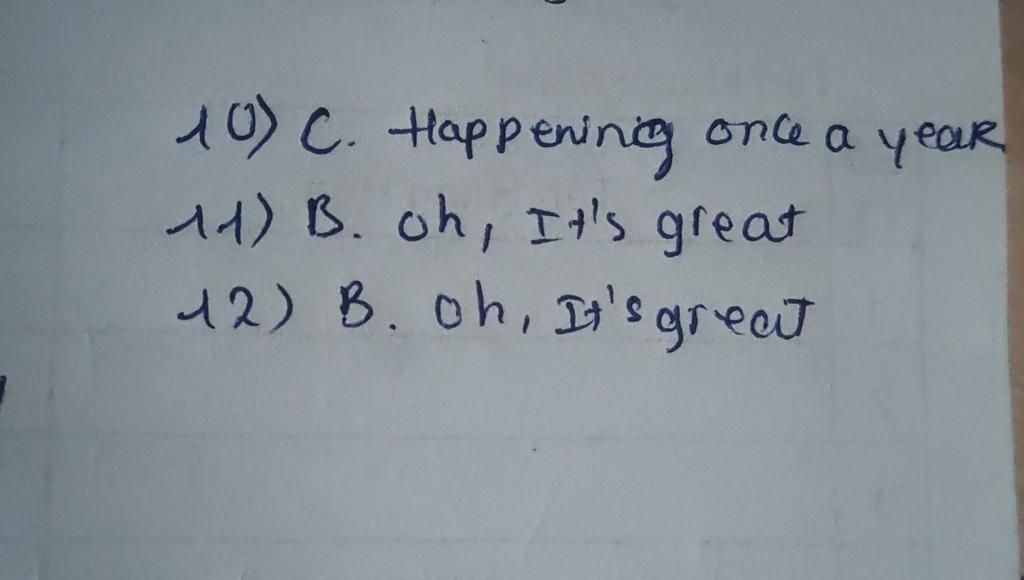 10) C. Happening once a year
11) B. oh, It's great
12) B. oh, It's great